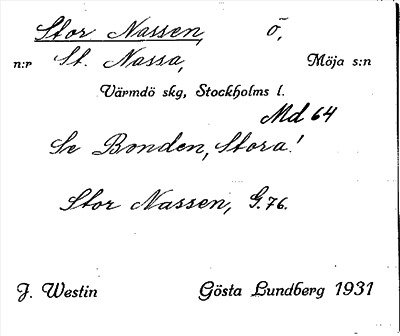 Stor Nassen, ö,
n:r St. Nassa, Möja s:n
Värmdö skg, Stockholms l.
Md 64
Se Bonden, Stora!
Stor Nassen, G.76.
J. Westin Gösta Lundberg 1931